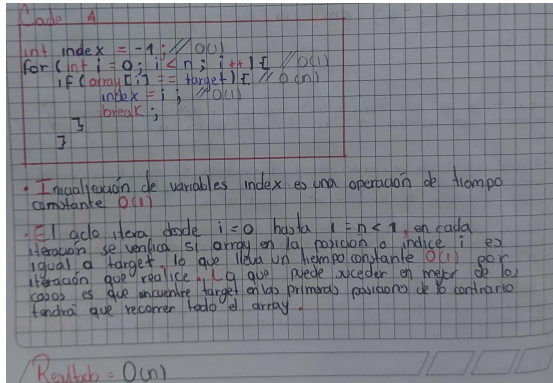 Code A
int index = -1; // O(1)
for (int i = 0; i < n; i++) { // O(1)
if (array[i] == target) { // O(n)
index = i; // O(1)
break;
}
}
• Inicialización de variables index es una operación de tiempo
constante O(1)
• El ciclo itera desde i=0 hasta i=n<1, en cada
iteración se verifica si array en la posición o indice i es
igual a target, lo que lleva un tiempo constante O(1) por
iteración que realice. Lo que puede suceder en mejor de los
casos es que encuentre target en las primeras posiciones de lo contrario
tendrá que recorrer todo el array.
Resultado = O(n)